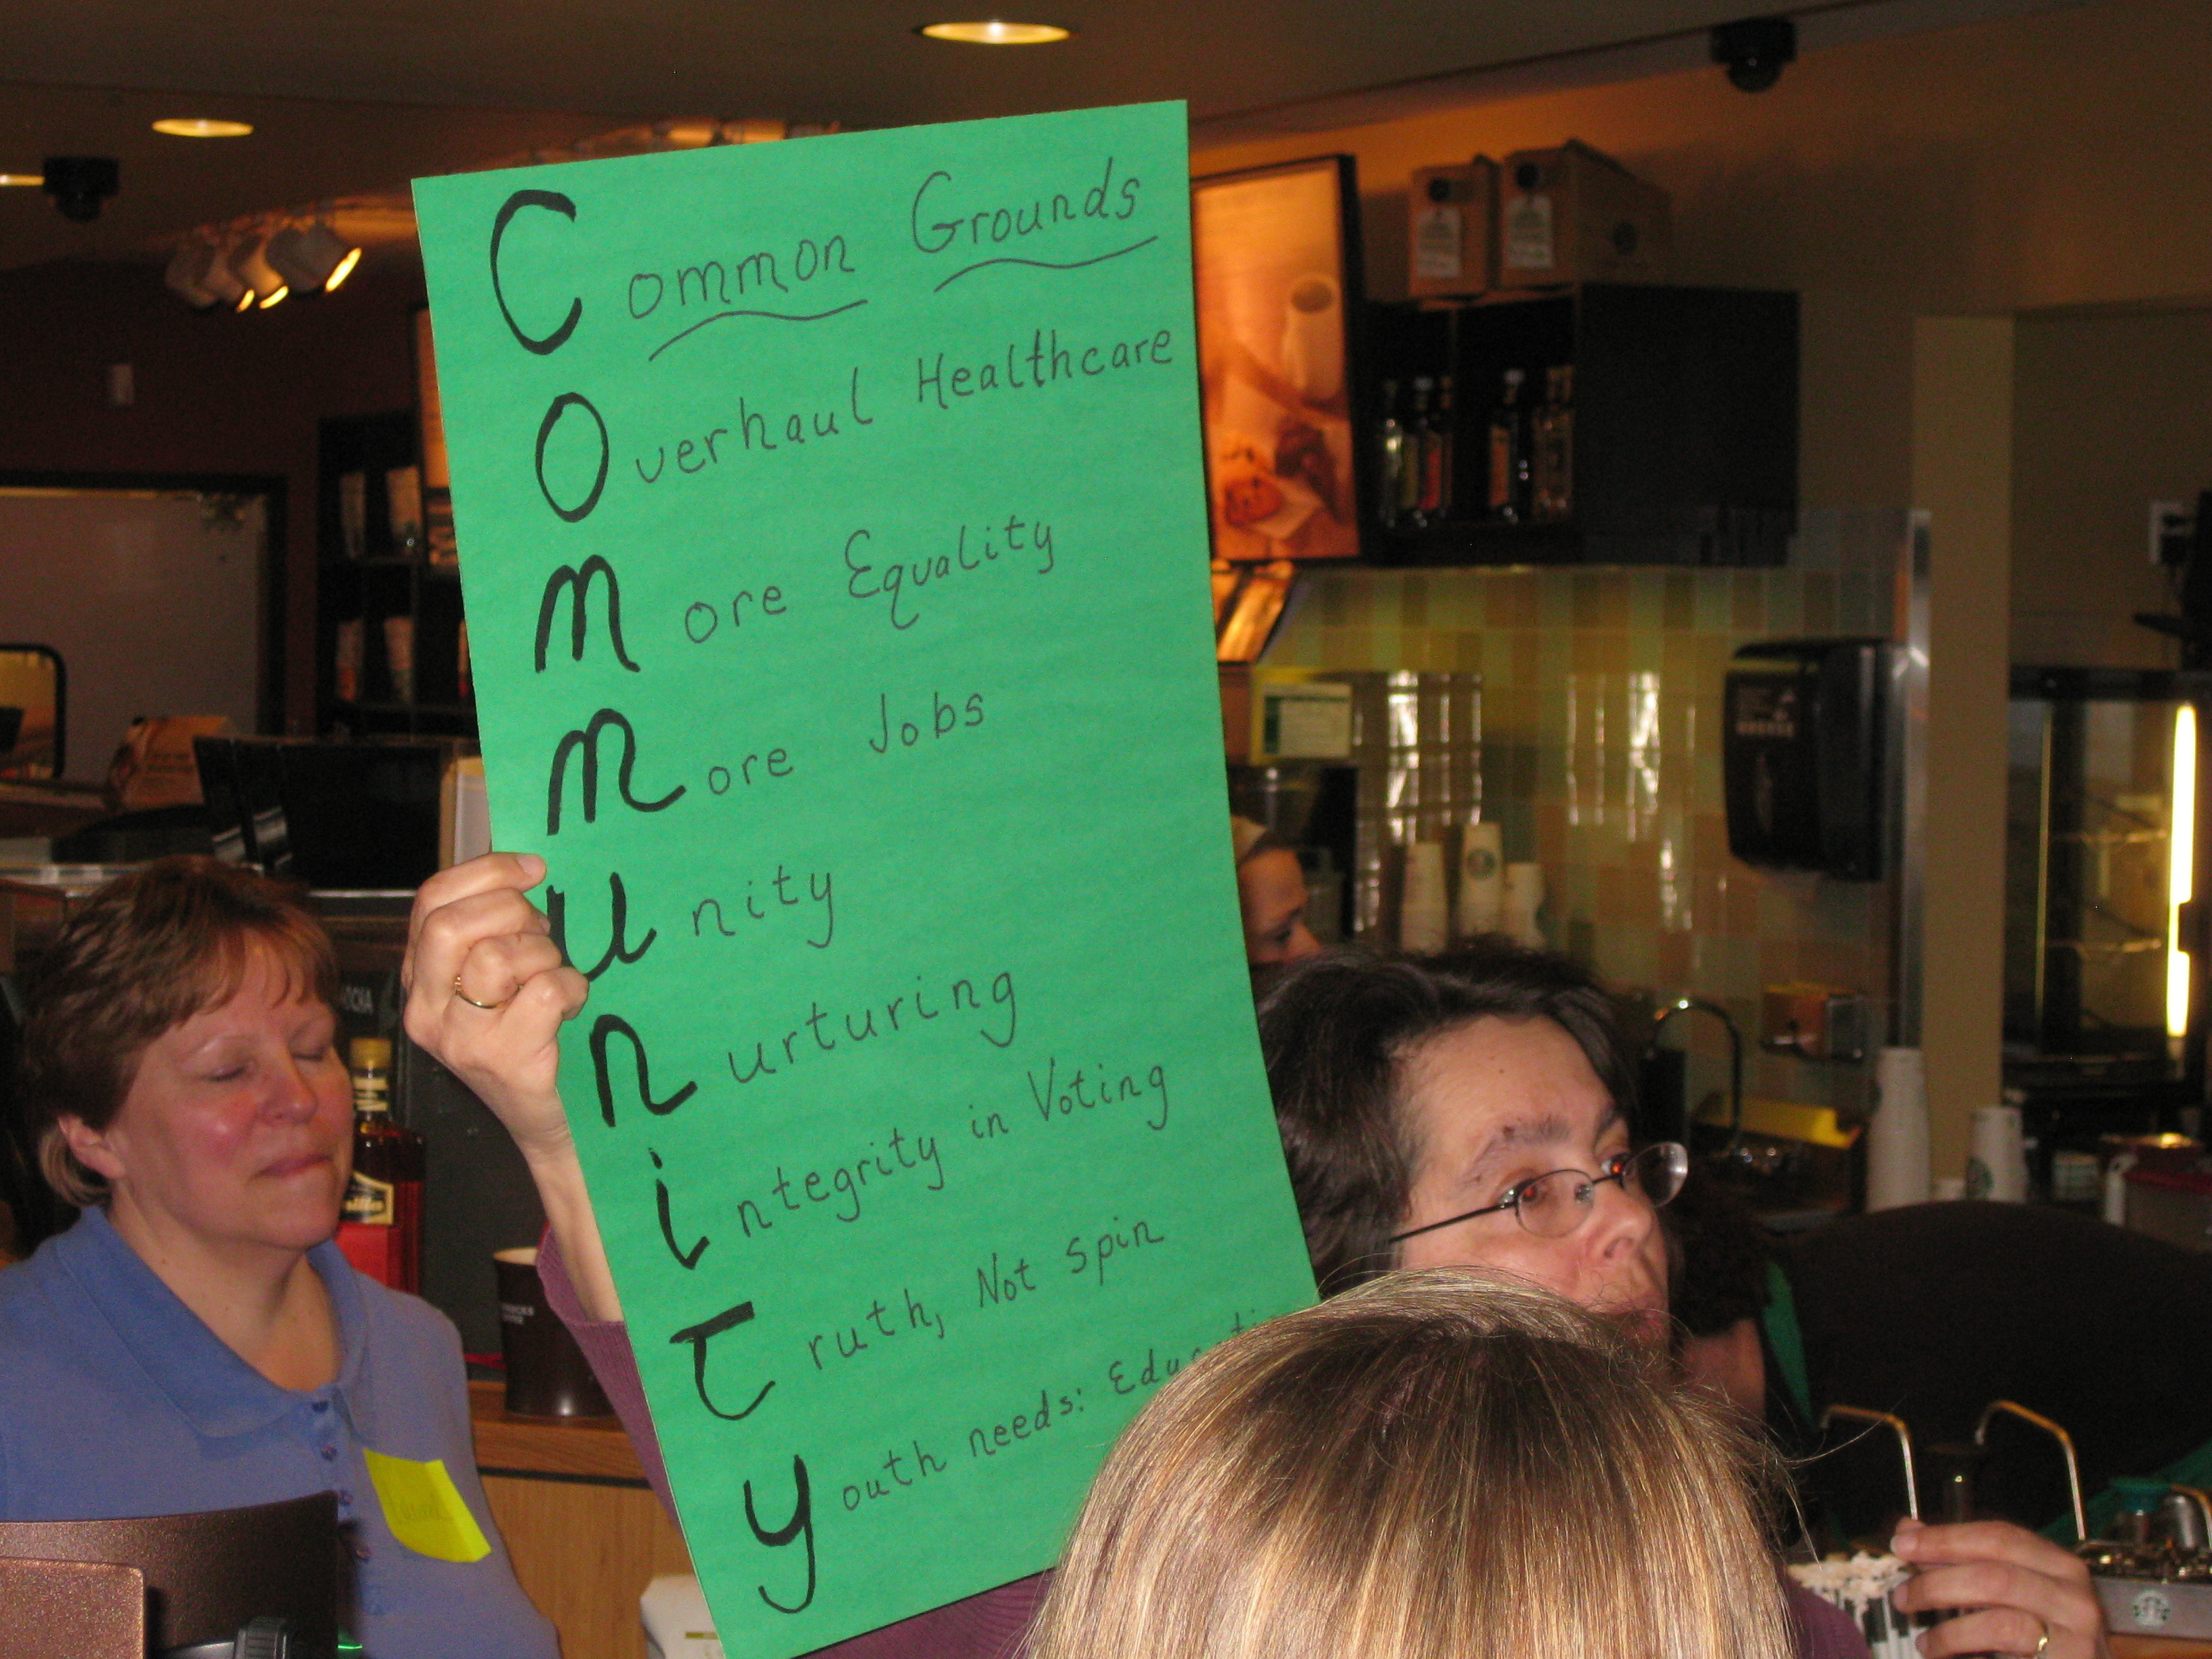 Common Grounds
Overhaul Healthcare
More Equality
More Jobs
Unity
Nurturing
Integrity in Voting
Truth, Not Spin
Youth needs: